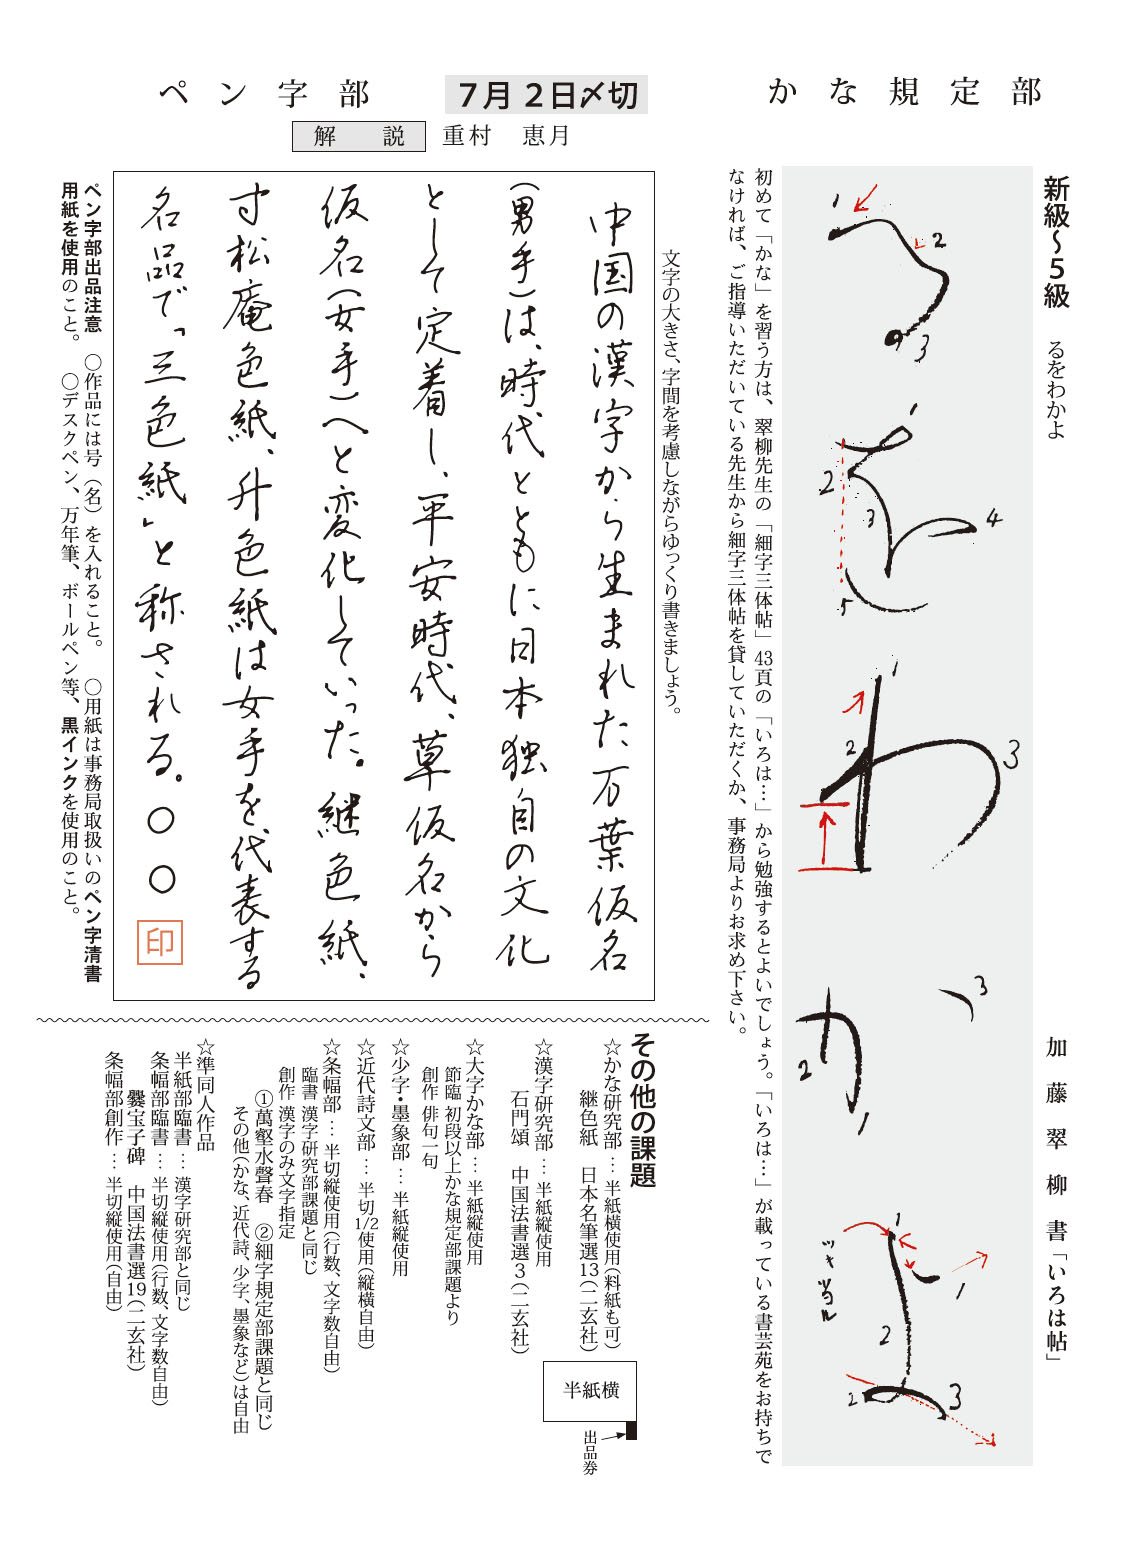 かな規定部
新級〜5級　るをわかよ
加藤翠柳書「いろは帖」
1
2
3
1
2
3
4
5
1
2
3
3
2
1
1
1
ツキ当ル
2
2
3
初めて「かな」を習う方は、翠柳先生の「細字三体帖」43頁の「いろは…」から勉強するとよいでしょう。「いろは…」が載っている書芸苑をお持ちで
なければ、ご指導いただいている先生から細字三体帖を貸していただくか、事務局よりお求め下さい。
7月2日〆切
ペン字部
解　説　重村　恵月
文字の大きさ、字間を考慮しながらゆっくり書きましょう。
中国の漢字から生まれた万葉仮名
(男手)は、時代とともに日本独自の文化
として定着し、平安時代、草仮名から
仮名(女手)へと変化していった。継色紙、
寸松庵色紙、升色紙は女手を代表する
名品で、「三色紙」と称される。〇〇
印
ペン字部出品注意　〇作品には号（名）を入れること。　〇用紙は事務局取扱いのペン字清書
用紙を使用のこと。　〇デスクペン、万年筆、ボールペン等、黒インクを使用のこと。
その他の課題
☆かな研究部…半紙横使用（料紙も可）
継色紙　日本名筆選13（二玄社）
☆漢字研究部…半紙縦使用
石門頌　中国法書選3（二玄社）
☆大字かな部…半紙縦使用
節臨 初段以上かな規定部課題より
創作 俳句一句
☆少字・墨象部…半紙縦使用
☆近代詩文部…半切1/2使用（縦横自由）
☆条幅部…半切縦使用（行数、文字数自由）
臨書 漢字研究部課題と同じ
創作 漢字のみ文字指定
①萬壑水聲春　②細字規定部課題と同じ
その他（かな、近代詩、少字、墨象など）は自由
☆準同人作品
半紙部臨書…漢字研究部と同じ
条幅部臨書…半切縦使用（行数、文字数自由）
爨宝子碑　中国法書選19（二玄社）
条幅部創作…半切縦使用（自由）
半紙横
出品券